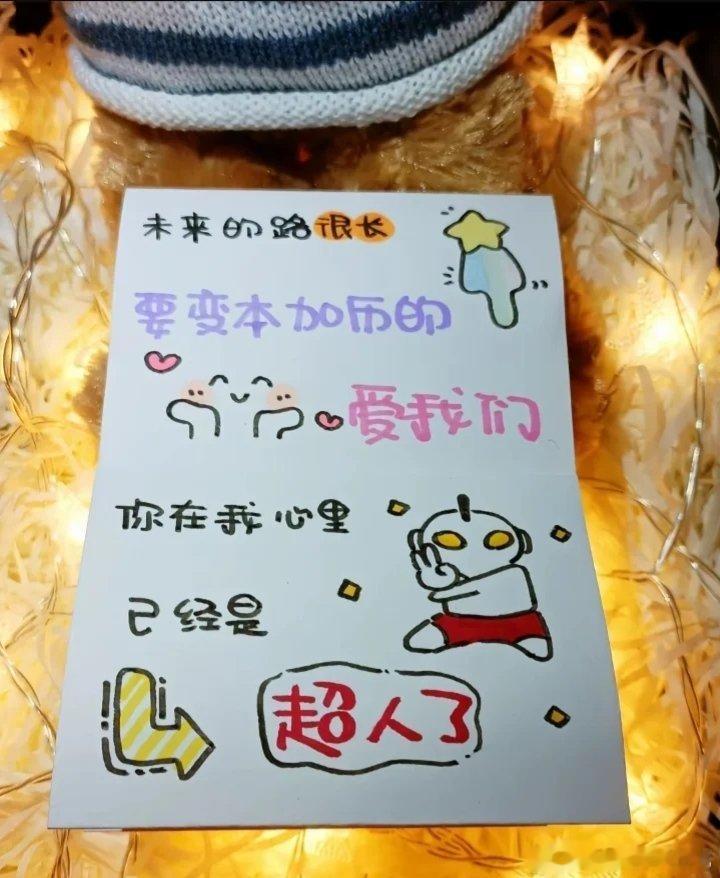 未来的路很长
要变本加历的
爱我们
你在我心里
已经是
超人了